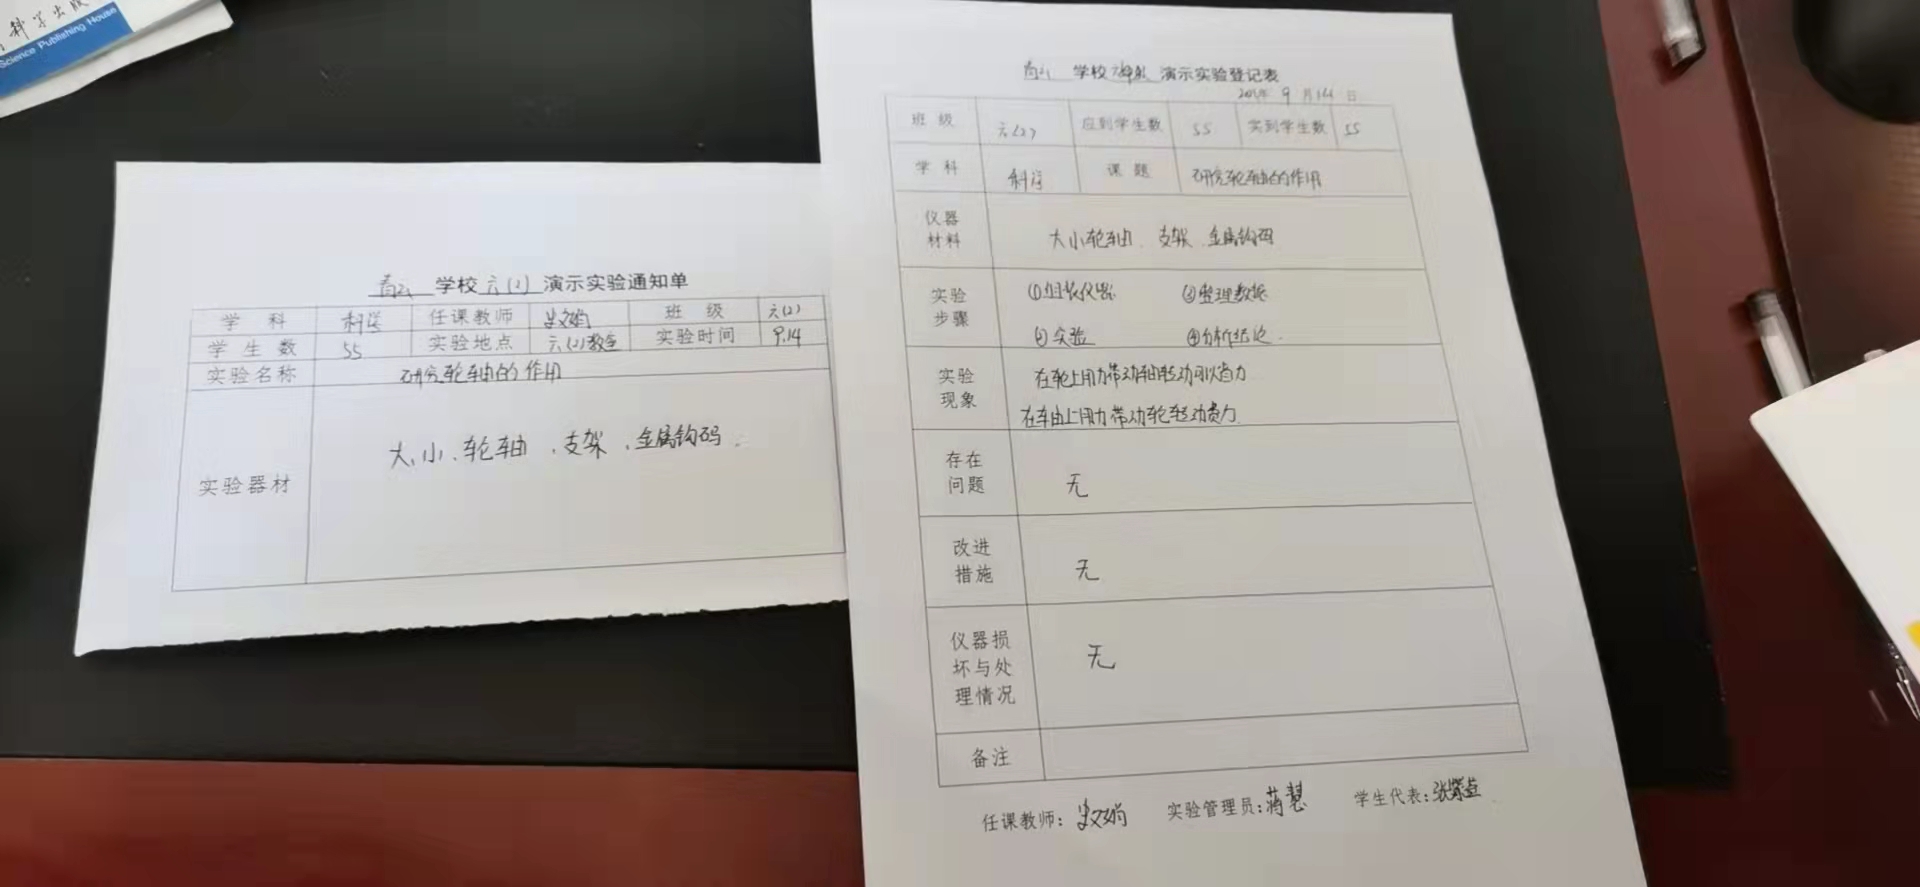 科学出版
Science Publishing House
学校 六(2) 演示实验通知单
学科 科学 任课教师 班级 六(2)
学生数 55 实验地点 六(2)教室 实验时间 9.14
实验名称 研究轮轴的作用
实验器材 大、小、轮轴、支架、金属钩码。
学校 演示实验登记表
9月14日
班级 六(2) 应到学生数 55 实到学生数 55
学科 科学 课题 研究轮轴的作用
仪器材料 大小轮轴、支架、金属钩码
实验步骤 ①组装仪器 ③整理数据
②实验 ④分析结论.
实验现象 在轮上用力带动轴转动可以省力
在轴上用力带动轮转动费力.
存在问题 无
改进措施 无
仪器损坏与处理情况 无
备注
任课教师: 实验管理员:蒋慧 学生代表:张